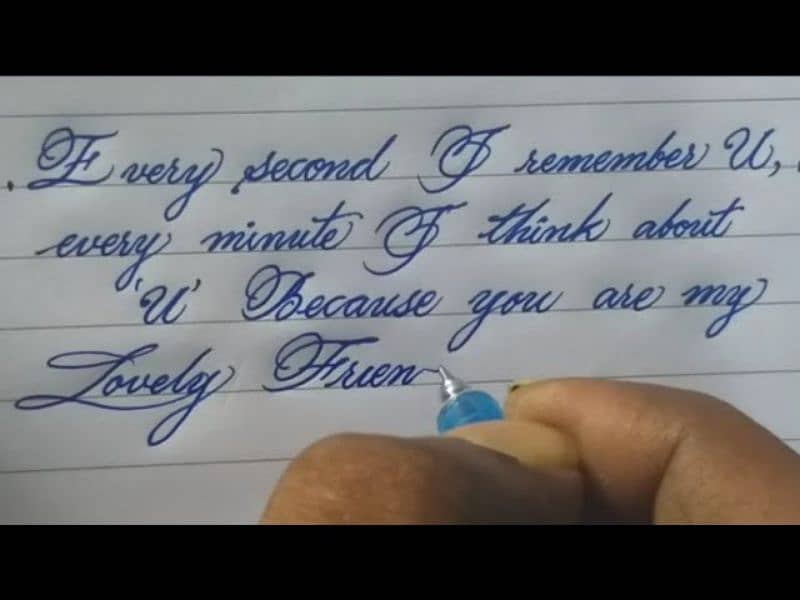 Every second I remember U,
every minute I think about
'U' Because you are my
Lovely Frien